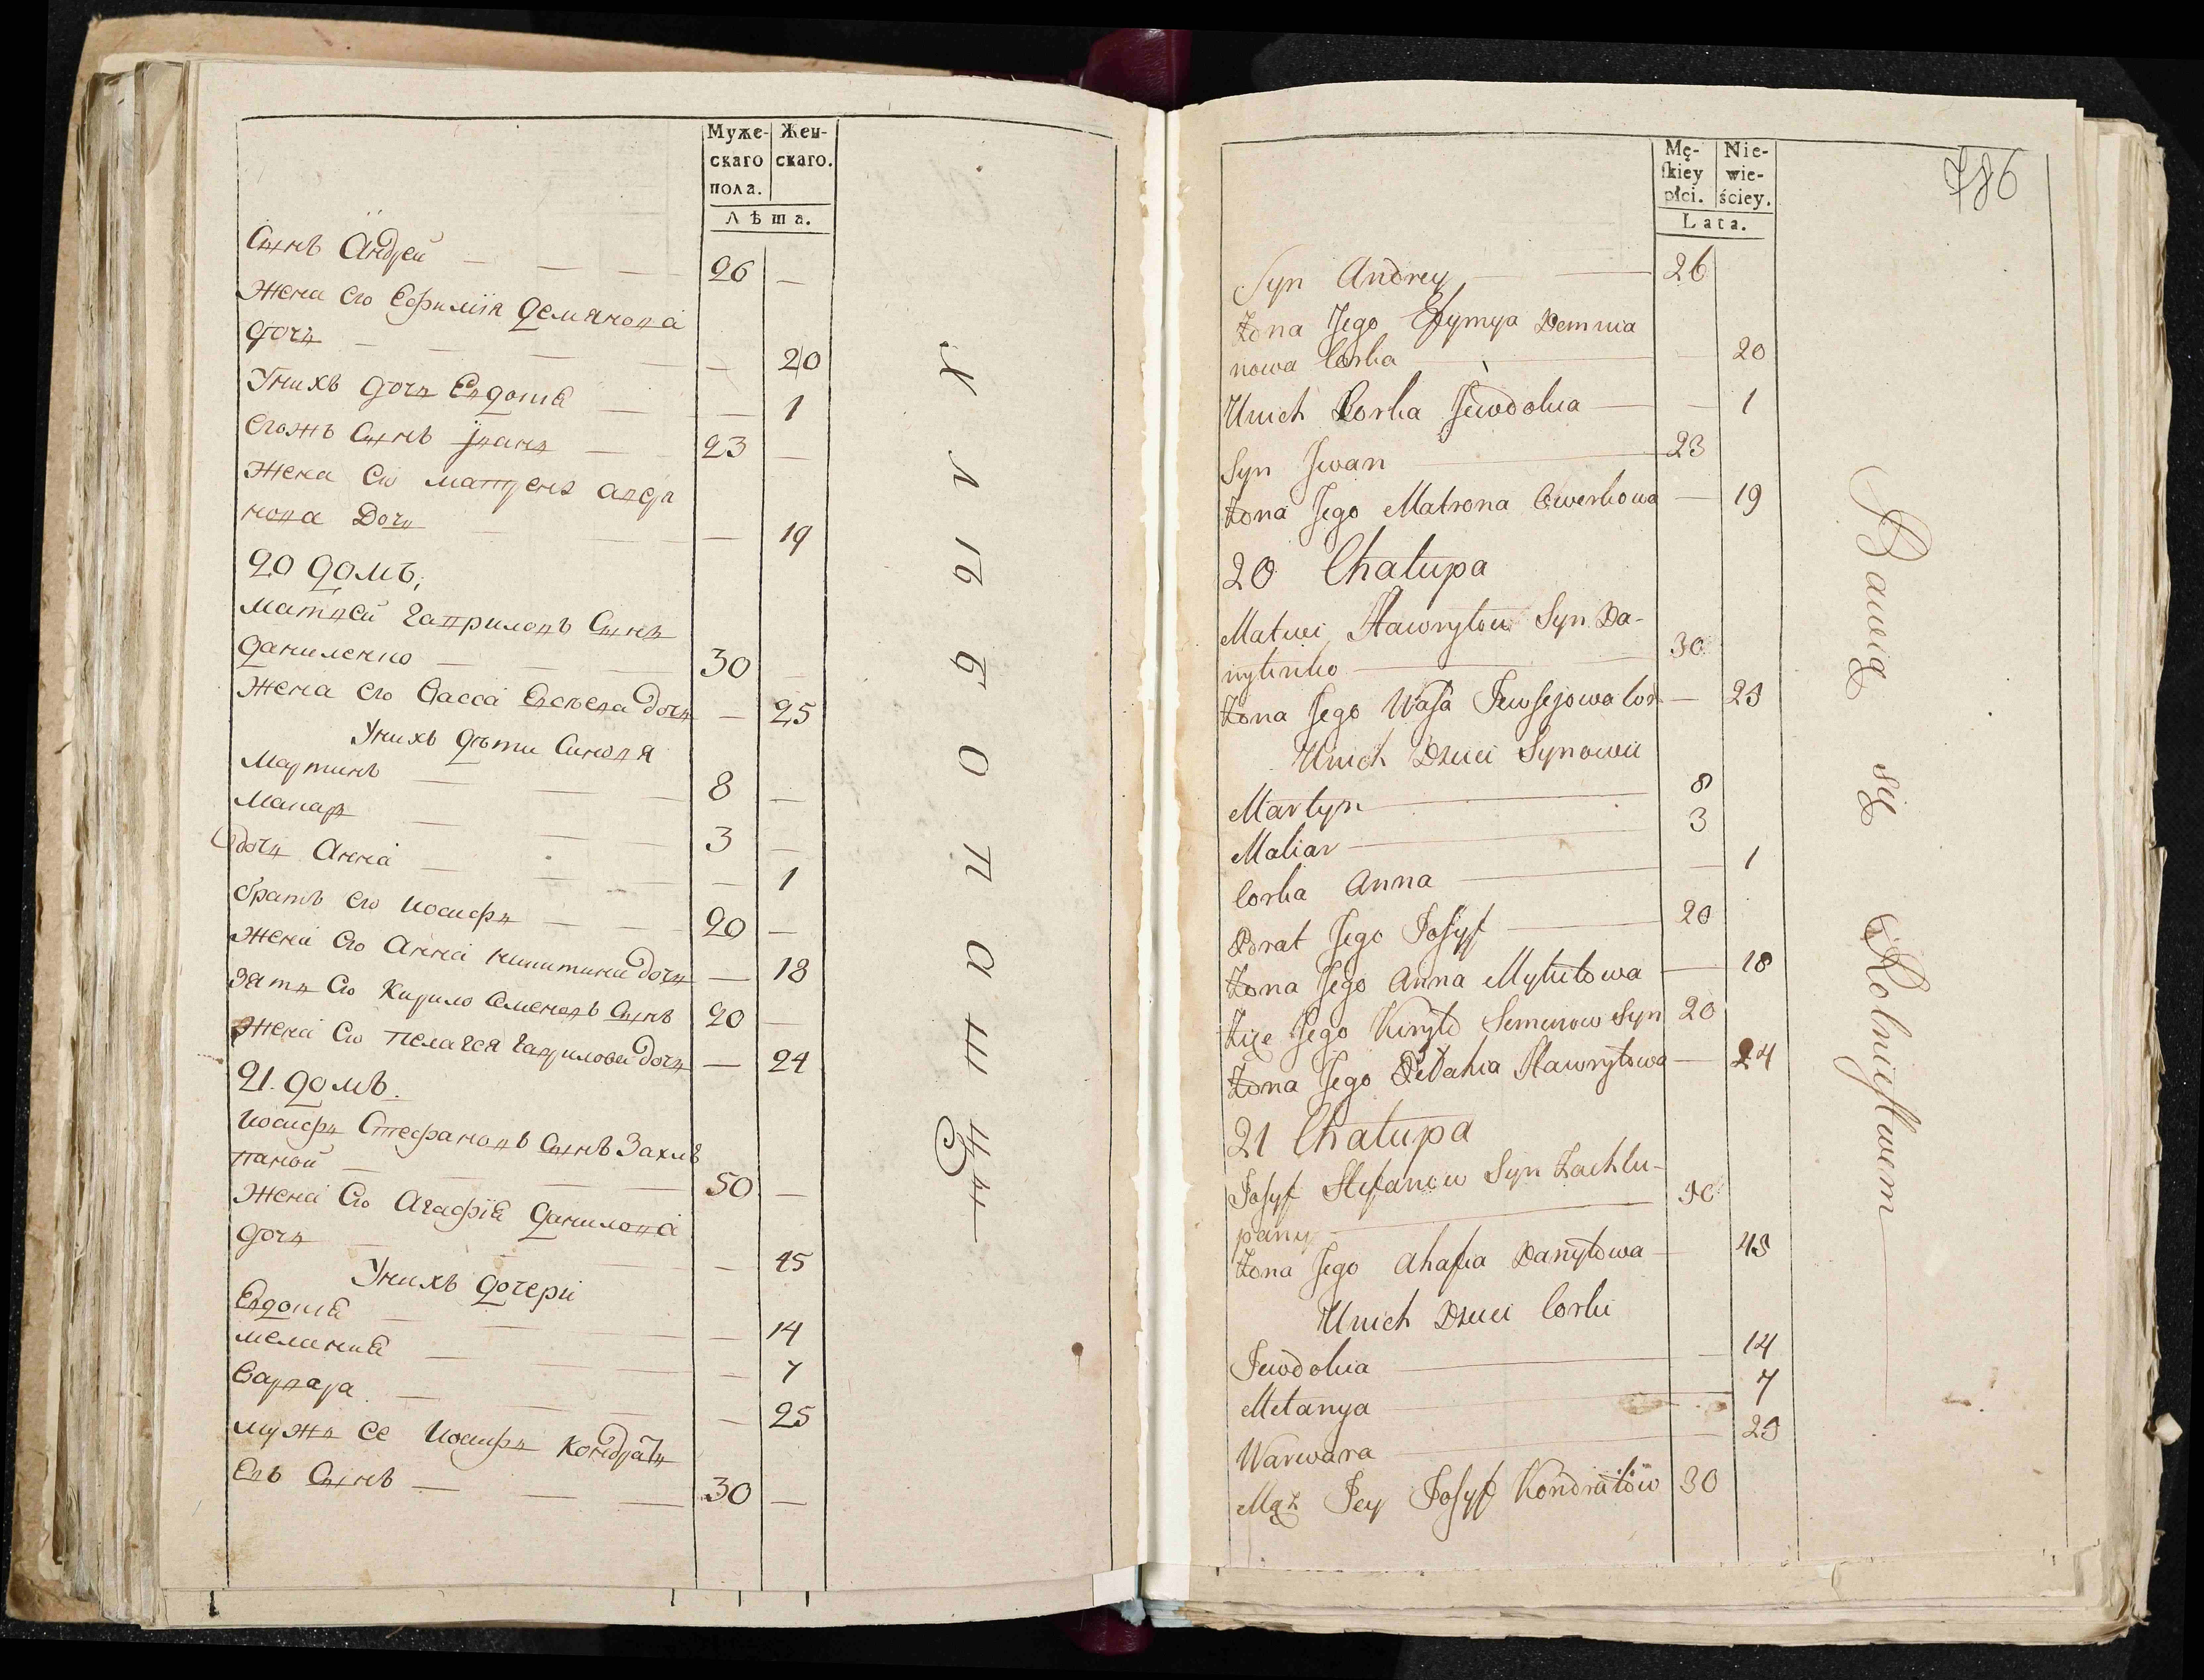 Муже-
скаго
пола.
Жен-
скаго.
Лѣта.
Сынъ Андрей — 26 —
Жена Его Ефимія Демянова
дочь — — 20
Унихъ дочь Евдокия — — 1
Егожъ Сынъ Іванъ — 23 —
Жена Его Матрена Авер
кова Дочь — — 19
20 домъ,
Матвей Гавриловъ Сынъ
Даниленко — 30 —
Жена Его Васса Евсеева дочь — 25
Унихъ дѣти Синовя
Мартинъ — 8 —
Макаръ — 3 —
дочь Анна — — 1
братъ Его Иосифъ — 20 —
Жена Его Анна Никитина дочь — 18
Зять Его Кирило Семеновъ Сынъ 20 —
Жена Его Пелагея Гаврилова дочь — 24
21. домъ.
Иосифъ Стефановъ Сынъ Захлю
паной — 50 —
Жена Его Агафія Данилова
дочь — — 45
Унихъ дочери
Евдокия — — 14
Мелания — — 7
Варвара — — 25
мужъ Ее Иосифъ Кондрать
Евъ Сынъ — 30 —
Хлѣбопашецъ
786
Mę-
skiey
płci.
Nie-
wie-
ściey.
Lata.
Syn Andrey — 26
Żona Jego Efymya Demnia
nowa Corka — 20
Unich Corka Jewdokia — — 1
Syn Jwan — 23
Żona Jego Matrona Owerkowa — 19
20 Chałupa
Matwi Hawryłow Syn Da-
nylenko — 30
Żona Jego Wasa Jewsejowa Cor — 25
Unich Dzieci Synowie
Martyn — 8
Makar — 3
Corka Anna — — 1
Brat Jego Josyf — 20
Żona Jego Anna Mykitowa — 18
Zięć Jego Kiryło Semenow Syn 20
Żona Jego Pełahia Hawryłowa — 24
21 Chałupa
Josyf Stefanow Syn Zachlu-
pany — 50
Żona Jego Ahafia Danyłowa — 45
Unich Dzieci Corki
Jewdokia — 14
Mełanya — 7
Warwara — 25
Mąż Jey Josyf Kondratów 30
Bawią się Rolnictwem